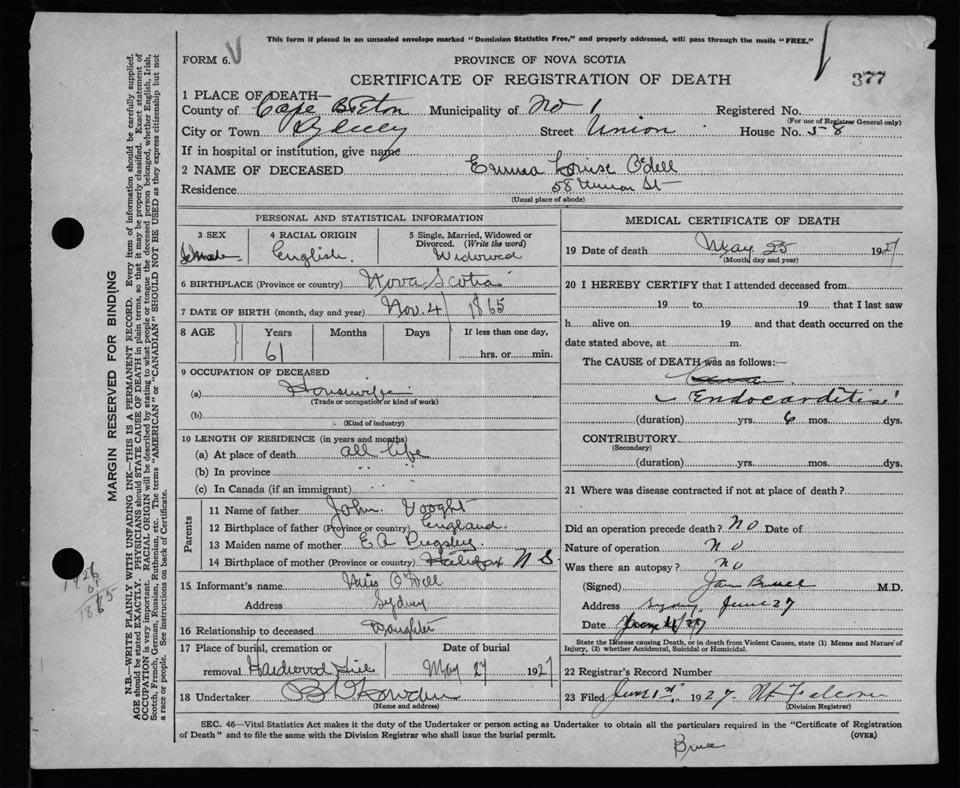 This form if placed in an unsealed envelope marked "Dominion Statistics Free," and properly addressed, will pass through the mails "FREE."
FORM 6. V
PROVINCE OF NOVA SCOTIA
377
CERTIFICATE OF REGISTRATION OF DEATH
1 PLACE OF DEATH—
County of Cape Breton Municipality of No 1 Registered No.
(For use of Registrar General only)
City or Town Sydney Street Union House No. 58
If in hospital or institution, give name
2 NAME OF DECEASED Emma Louise O'dell
Residence 58 Union St
(Usual place of abode)
PERSONAL AND STATISTICAL INFORMATION
3 SEX Female
4 RACIAL ORIGIN English.
5 Single, Married, Widowed or Divorced. (Write the word) Widowed
6 BIRTHPLACE (Province or country) Nova Scotia
7 DATE OF BIRTH (month, day and year) Nov. 4/ 1865
8 AGE Years Months Days If less than one day,
61 hrs. or min.
9 OCCUPATION OF DECEASED
(a) Housewife
(Trade or occupation or kind of work)
(b)
(Kind of industry)
10 LENGTH OF RESIDENCE (in years and months)
(a) At place of death all life
(b) In province " "
(c) In Canada (if an immigrant) " "
Parents
11 Name of father John. Vooght
12 Birthplace of father (Province or country) England.
13 Maiden name of mother E A Pugsley
14 Birthplace of mother (Province or country) Halifax N S
15 Informant's name O'Dell
Address Sydney
16 Relationship to deceased Daughter
17 Place of burial, cremation or removal Hardwood Hill
Date of burial May 27 1927
18 Undertaker
(Name and address)
MEDICAL CERTIFICATE OF DEATH
19 Date of death May 25 1927
(Month, day and year)
20 I HEREBY CERTIFY that I attended deceased from
19 to 19 that I last saw
h alive on 19 and that death occurred on the
date stated above, at m.
The CAUSE of DEATH was as follows:—
Endocarditis
(duration) yrs. 6 mos. dys.
CONTRIBUTORY
(Secondary)
(duration) yrs. mos. dys.
21 Where was disease contracted if not at place of death?
Did an operation precede death? NO Date of
Nature of operation NO
Was there an autopsy? NO
(Signed) Bruce M.D.
Address Sydney, June 27
Date
State the Disease causing Death, or in death from Violent Causes, state (1) Means and Nature of Injury, (2) whether Accidental, Suicidal or Homicidal.
22 Registrar's Record Number
23 Filed June 1st, 1927. Falconer
(Division Registrar)
SEC. 46—Vital Statistics Act makes it the duty of the Undertaker or person acting as Undertaker to obtain all the particulars required in the "Certificate of Registration
of Death" and to file the same with the Division Registrar who shall issue the burial permit.
(OVER)
Bruce
MARGIN RESERVED FOR BINDING
N.B.—WRITE PLAINLY WITH UNFADING INK—THIS IS A PERMANENT RECORD. Every item of information should be carefully supplied.
AGE should be stated EXACTLY. PHYSICIANS should STATE CAUSE OF DEATH in plain terms, so that it may be properly classified. Exact statement of
OCCUPATION is very important. RACIAL ORIGIN will be described by stating to what people or tongue the deceased person belonged, whether English, Irish,
Scotch, French, German, Russian, Ruthenian, etc. The terms "AMERICAN" or "CANADIAN" SHOULD NOT BE USED as they express citizenship but not
a race or people. See instructions on back of Certificate.
1926
61
1865